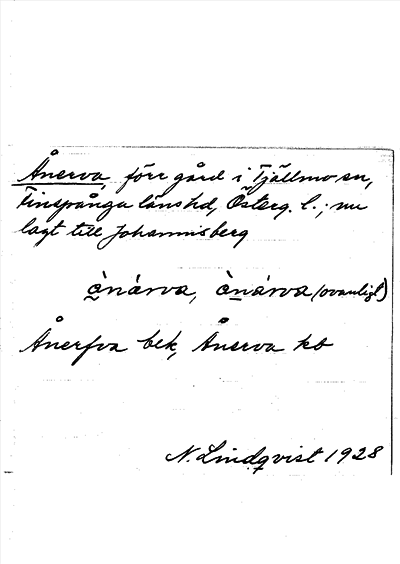 Ånerva, förr gård i Tjällmo sn,
Finspånga läns hd, Österg. l.; nu
lagt till Johannisberg
ånårva, ånårva (ovanligt)
Ånerfva bek, Ånerva kb
N. Lindqvist 1928